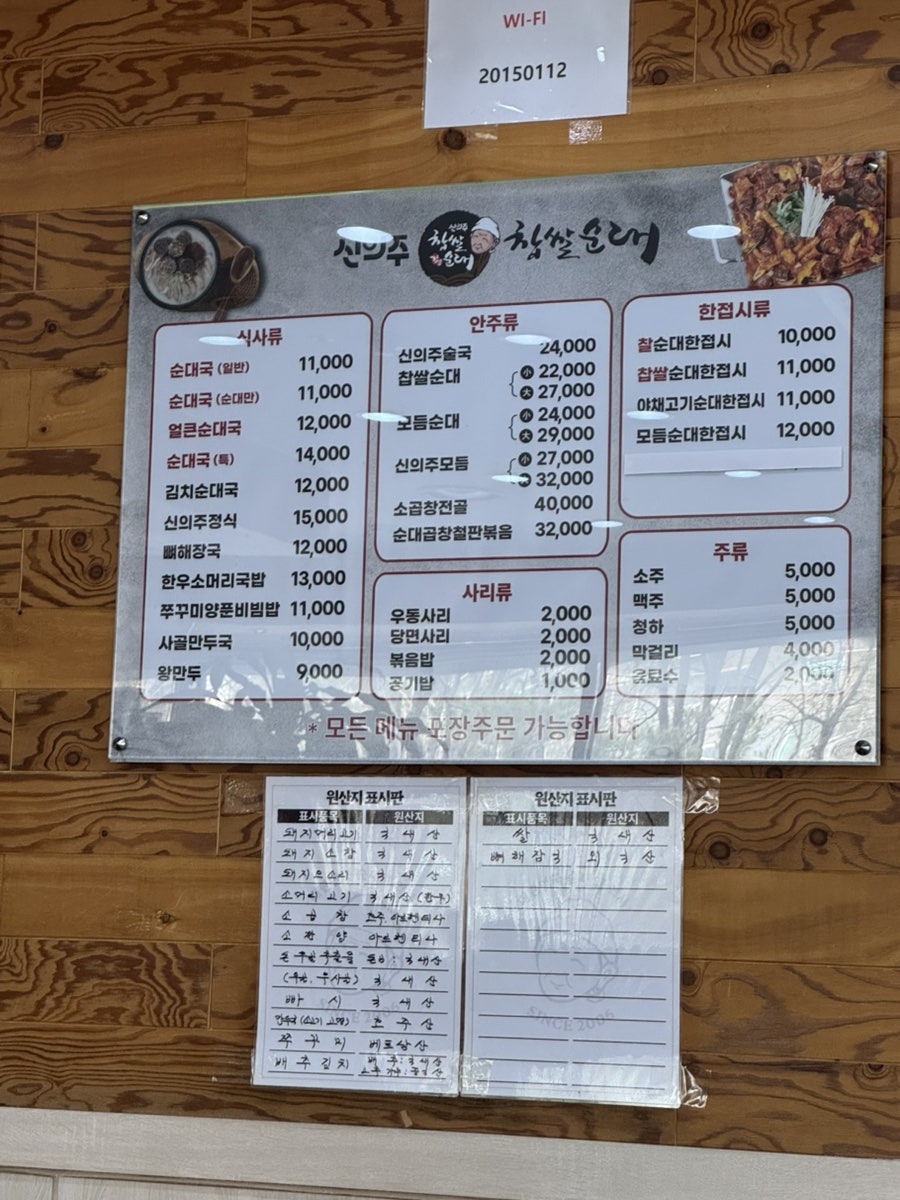 WI-FI
20150112
신의주
신의주
찹쌀
순대
찹쌀순대
식사류
순대국 (일반) 11,000
순대국 (순대만) 11,000
얼큰순대국 12,000
순대국 (특) 14,000
김치순대국 12,000
신의주정식 15,000
뼈해장국 12,000
한우소머리국밥 13,000
쭈꾸미양푼비빔밥 11,000
사골만두국 10,000
왕만두 9,000
안주류
신의주술국 24,000
찹쌀순대 小 22,000
大 27,000
모듬순대 小 24,000
大 29,000
신의주모듬 小 27,000
大 32,000
소곱창전골 40,000
순대곱창철판볶음 32,000
사리류
우동사리 2,000
당면사리 2,000
볶음밥 2,000
공기밥 1,000
한접시류
찰순대한접시 10,000
찹쌀순대한접시 11,000
야채고기순대한접시 11,000
모듬순대한접시 12,000
주류
소주 5,000
맥주 5,000
청하 5,000
막걸리 4,000
음료수 2,000
* 모든 메뉴 포장주문 가능합니다
원산지 표시판
표시품목 원산지
돼지머리고기 국내산
돼지소창 국내산
돼지오소리 국내산
소머리고기 국내산 (한우)
소곱창 호주, 아르헨티나
소깐양 아르헨티나
국내산
국내산
국내산
호주산
쭈꾸미 베트남산
배추김치 배추:국내산
원산지 표시판
표시품목 원산지
쌀 국내산
뼈해장국 외국산
SINCE 2005